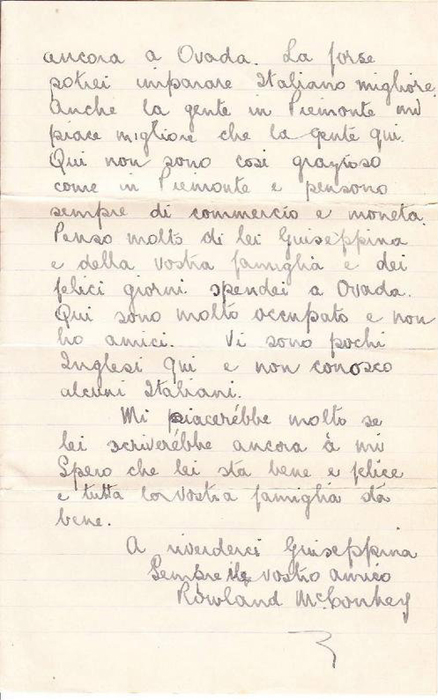 ancora a Ovada. La forse
potrei imparare Italiano migliore.
Anche la gente in Piemonte mi
piace migliore che la gente qui.
Qui non sono cosi grazioso
come in Piemonte e pensono
sempre di commercio e moneta.
Penso molto di lei Guiseppina
e della vostra famiglia e dei
felici giorni spendei a Ovada.
Qui sono molto occupato e non
ho amici. Vi sono pochi
Inglesi qui e non conosco
alcuni Italiani.
Mi piacerébbe molto se
lei scriverébbe ancora à mi
Spero che lei sta bene e felice
e tutta la vostra famiglia sta
bene.
A riverderci Guiseppina
Sempre vostro amico
Rowland McConkey